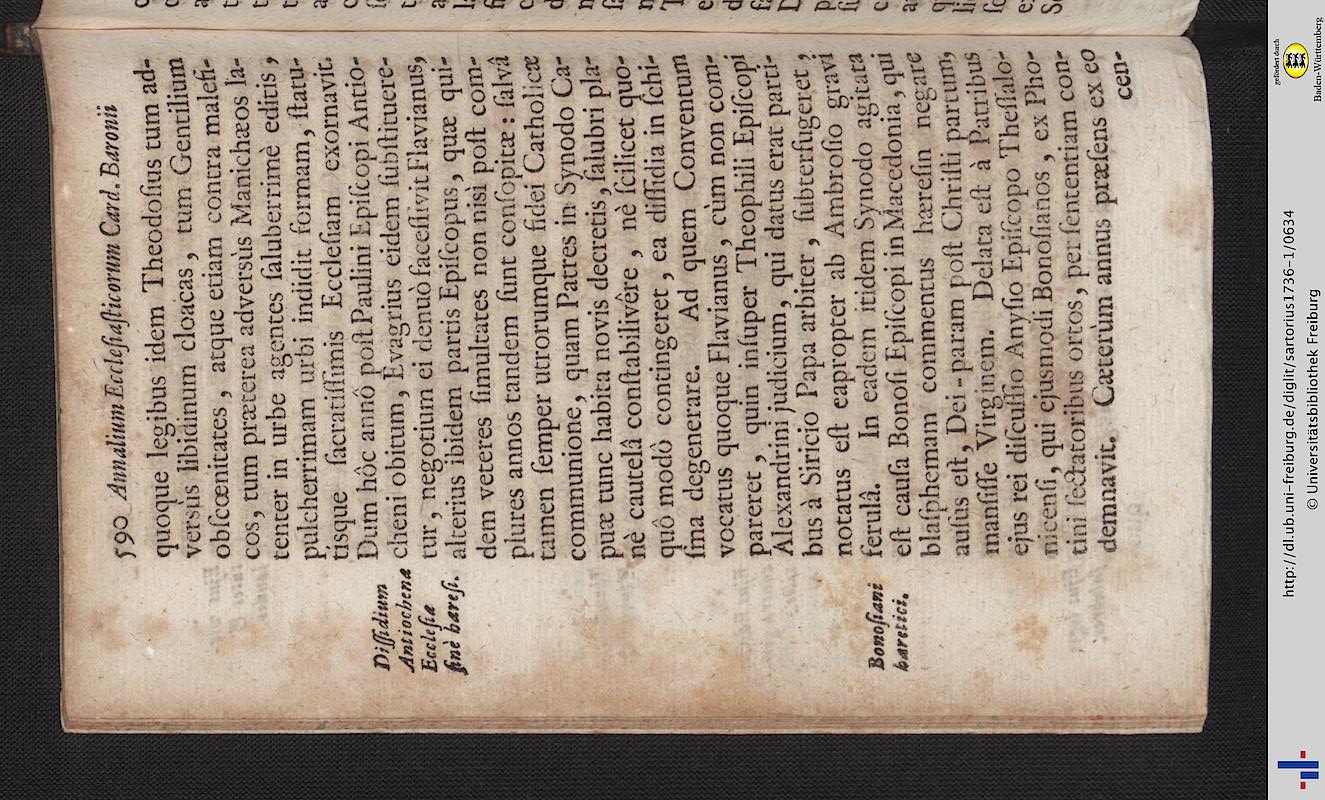 590 Annalium Ecclesiasticorum Card. Baronii
quoque legibus idem Theodoſius tum ad-
versùs libidinum cloacas, tum Gentilium
obſcœnitates, atque etiam contra malefi-
cos, tum præterea adversùs Manichæos la-
tenter in urbe agentes ſaluberrimè editis,
pulcherrimam urbi indidit formam, ſtatu-
tisque ſacratiſſimis Eccleſiam exornavit.
Dum hôc annô poſt Paulini Epiſcopi Antio-
cheni obitum, Evagrius eidem ſubſtituere-
tur, negotium ei denuò faceſſivit Flavianus,
alterius ibidem partis Epiſcopus, quæ qui-
dem veteres ſimultates non niſi poſt com-
plures annos tandem ſunt conſopitæ: ſalvâ
tamen ſemper utrorumque fidei Catholicæ
communione, quam Patres in Synodo Ca-
puæ tunc habita novis decretis, ſalubri pla-
nè cautelâ conſtabilivêre, nè ſcilicet quo-
quô modò contingeret, ea diſſidia in ſchi-
ſma degenerare. Ad quem Conventum
vocatus quoque Flavianus, cùm non com-
pareret, quin inſuper Theophili Epiſcopi
Alexandrini judicium, qui datus erat parti-
bus à Siricio Papa arbiter, ſubterfugeret,
notatus eſt eapropter ab Ambroſio gravi
ferulâ. In eadem itidem Synodo agitata
eſt cauſa Bonoſi Epiſcopi in Macedonia, qui
blaſphemam commentus hæreſin negare
auſus eſt, Dei-param poſt Chriſti partum,
manſiſſe Virginem. Delata eſt à Patribus
ejus rei diſcuſſio Anyſio Epiſcopo Theſſalo-
nicenſi, qui ejusmodi Bonoſianos, ex Pho-
tini ſectatoribus ortos, per ſententiam con-
demnavit. Cæterùm annus præſens ex eo
cen-
Diſſidium
Antiochenæ
Eccleſiæ
ſinè hæreſi.
Bonoſiani
hæretici.
http://dl.ub.uni-freiburg.de/diglit/sartorius1736-1/0634
© Universitätsbibliothek Freiburg
gefördert durch
Baden-Württemberg